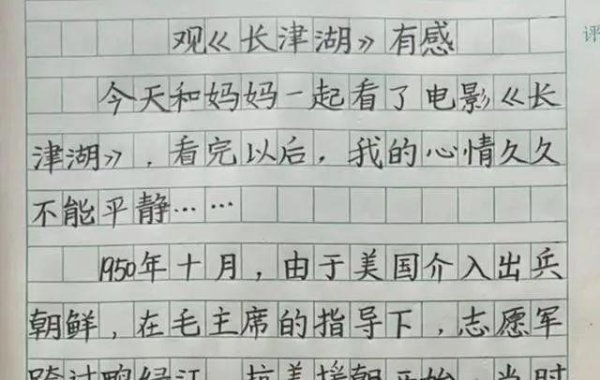 评
观《长津湖》有感
今天和妈妈一起看了电影《长
津湖》，看完以后，我的心情久久
不能平静……
1950年十月，由于美国介入出兵
朝鲜，在毛主席的指导下，志愿军
跨过鸭绿江，抗美援朝开始，当时